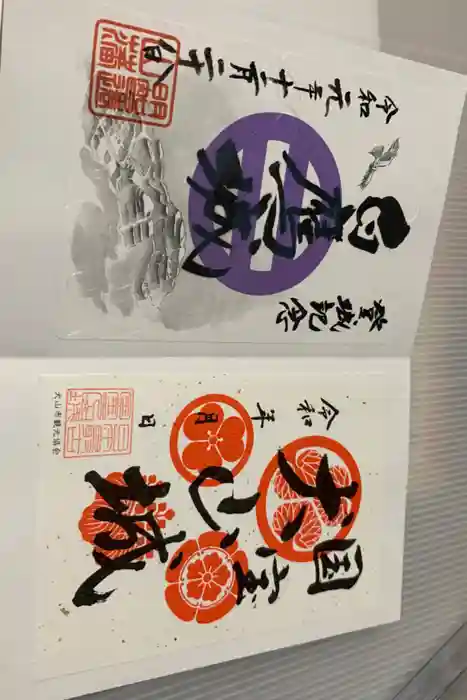 登城記念
白鷹城
令和元年十一月二十八日
国宝
犬山城
令和 年 月 日
犬山市観光協会